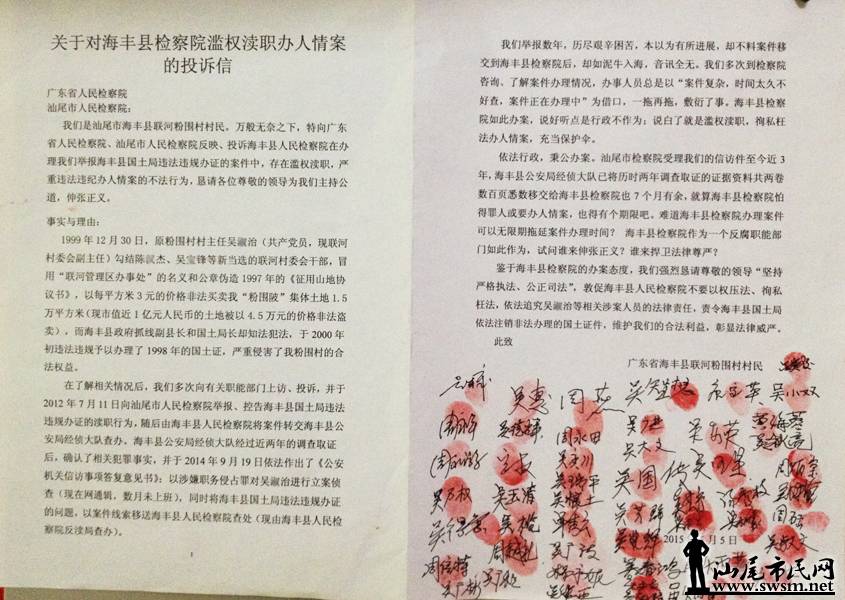 关于对海丰县检察院滥权渎职办人情案
的投诉信
广东省人民检察院
汕尾市人民检察院：
我们是汕尾市海丰县联河粉围村村民。万般无奈之下，特向广东
省人民检察院、汕尾市人民检察院反映、投诉海丰县人民检察院在办
理我们举报海丰县国土局违法违规办证的案件中，存在滥权渎职，严
重违法违纪办人情案的不法行为，恳请各位尊敬的领导为我们主持公
道，伸张正义。
事实与理由：
1999 年 12 月 30 日，原粉围村村主任吴淑治（共产党员，现联河
村委会副主任）勾结陈淑杰、吴宝锋等新当选的联河村委会干部，冒
用“联河管理区办事处”的名义和公章伪造 1997 年的《征用山地协
议书》，以每平方米 3 元的价格非法买卖我“粉围陂”集体土地 1.5
万平方米（现市值近 1 亿元人民币的土地被以 4.5 万元的价格非法盗
卖），而海丰县政府抓线副县长和国土局长却知法犯法，于 2000 年
初违法违规予以办理了 1998 年的国土证，严重侵害了我粉围村的合
法权益。
在了解相关情况后，我们多次向有关职能部门上访、投诉，并于
2012 年 7 月 11 日向汕尾市人民检察院举报、控告海丰县国土局违法
违规办证的渎职行为，随后由海丰县人民检察院将案件转交海丰县公
安局经侦大队查办。海丰县公安局经侦大队经过近两年的调查取证
后，确认了相关犯罪事实，并于 2014 年 9 月 19 日依法作出了《公安
机关信访事项答复意见书》：以涉嫌职务侵占罪对吴淑治进行立案侦
查（现在网通辑，数月未上班），同时将海丰县国土局违法违规办证
的问题，以案件线索移送海丰县人民检察院查处（现由海丰县人民检
察院反渎局查办）。
1
我们举报数年，历尽艰辛困苦，本以为有所进展，却不料案件移
交到海丰县检察院后，却如泥牛入海，音讯全无。我们多次到检察院
咨询、了解案件办理情况，办事人员总是以“案件复杂，时间太久不
好查，案件正在办理中”为借口，一拖再拖，敷衍了事。海丰县检察
院如此办案，说好听点是行政不作为；说白了就是滥权渎职，徇私枉
法办人情案，充当保护伞。
依法行政，秉公办案。汕尾市检察院受理我们的信访件至今近 3
年，海丰县公安局经侦大队已将历时两年调查取证的证据资料共两卷
数百页悉数移交给海丰县检察院也 7 个月有余，就算海丰县检察院怕
得罪人或要办人情案，也得有个期限吧。难道海丰县检察院办理案件
可以无限期拖延案件办理时间？ 海丰县检察院作为一个反腐职能部
门如此作为，试问谁来伸张正义？谁来捍卫法律尊严？
鉴于海丰县检察院的办案态度，我们强烈恳请尊敬的领导“坚持
严格执法、公正司法”，敦促海丰县人民检察院不要以权压法、徇私
枉法，依法追究吴淑治等相关涉案人员的法律责任，责令海丰县国土局
依法注销非法办理的国土证件，维护我们的合法利益，彰显法律威严。
此致
广东省海丰县联河粉围村村民
吴惠
周燕
吴小双
周永田
吴大文
吴国
吴玉清
吴敬文
2015
月 5 日
汕尾市民网
www.swsm.net